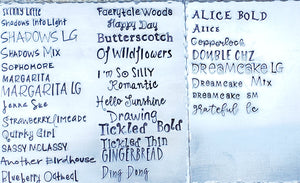 Skinny Latte
Shadows Into Light
SHADOWS LG
SHADOWS MIX
SOPHOMORE
MARGARITA
MARGARITA LG
Jenna Sue
Strawberry Limeade
Quirky Girl
SASSY MCLASSY
Another Birdhouse
Blueberry Oatmeal
Fairytale Woods
Happy Day
Butterscotch
Of Wildflowers
I'm So SILLY
Romantic
Hello Sunshine
Drawing
Tickled Bold
Tickled Thin
GINGERBREAD
Ding Dong
ALICE BOLD
Alice
Copperlock
DOUBLE CHZ
Dreamcake LG
Dreamcake Mix
Dreamcake SM
grateful lc